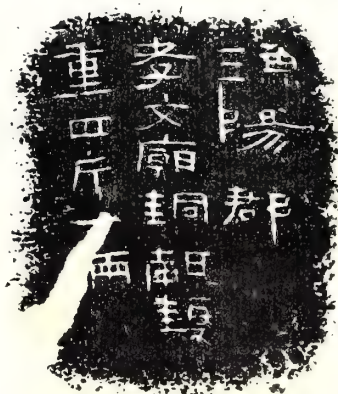 漁陽郡
孝文廟銅甗鍑
重四斤兩